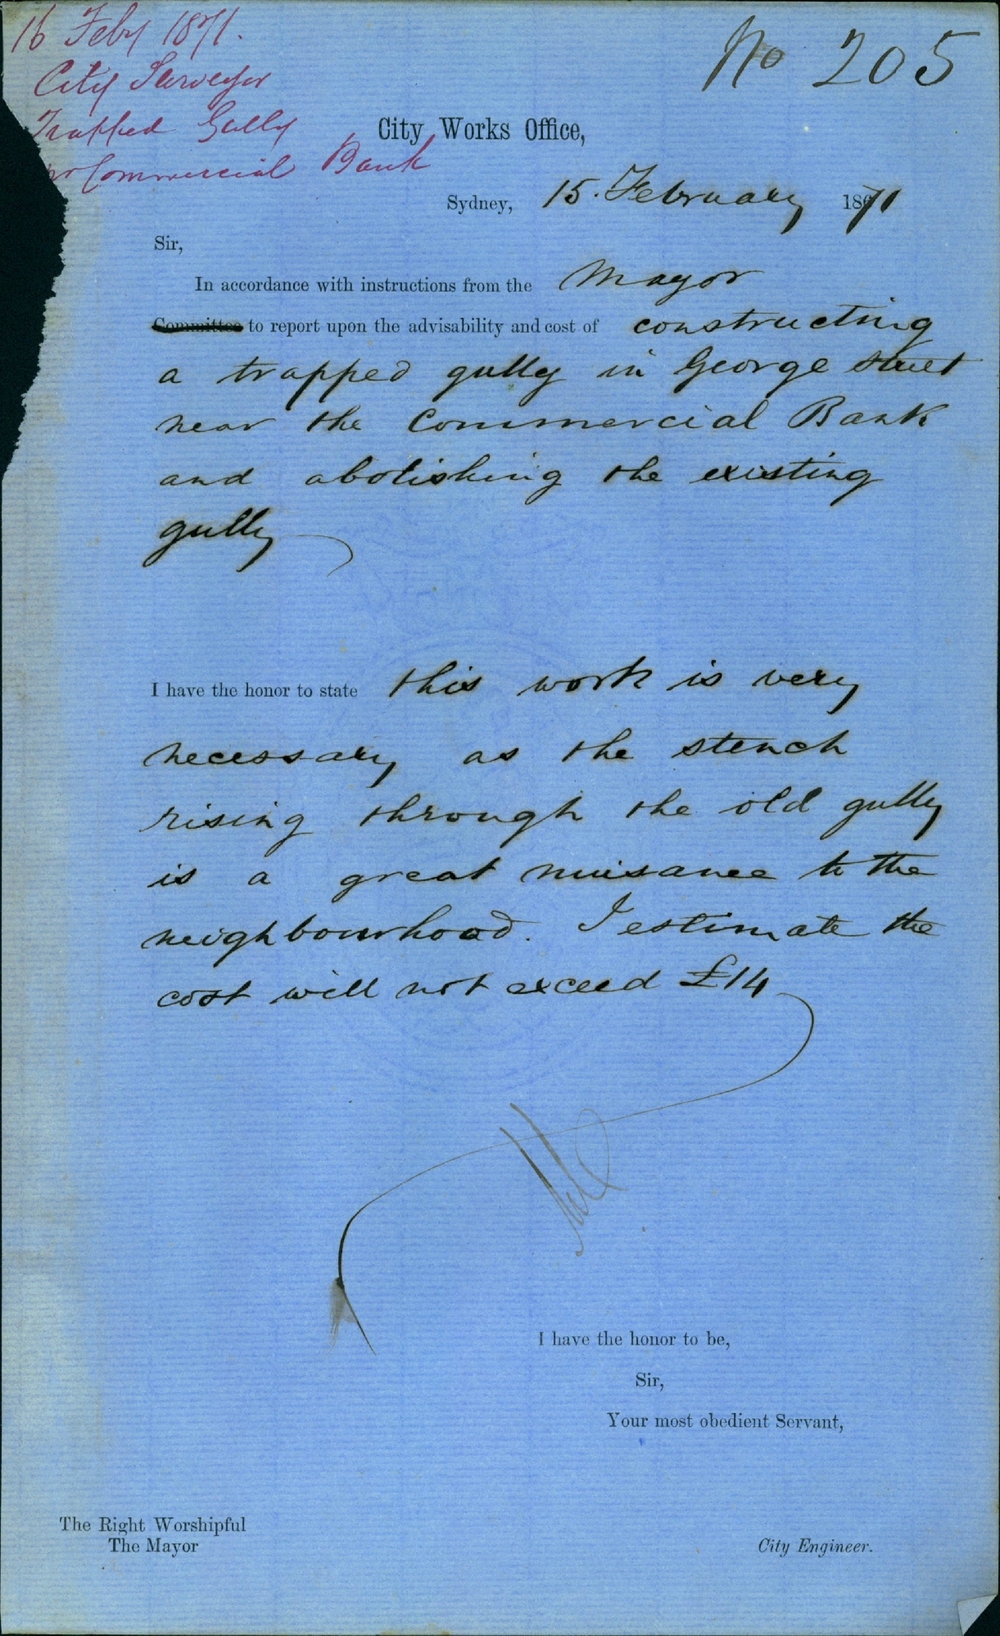 16 Feby 1871.
City Surveyor
Trapped Gully
nr Commercial Bank
No 205
City Works Office,
Sydney, 15. February 1871
Sir,
In accordance with instructions from the Mayor
Committee to report upon the advisability and cost of constructing
a trapped gully in George Street
near the Commercial Bank
and abolishing the existing
gully
I have the honor to state this work is very
necessary as the stench
rising through the old gully
is a great nuisance to the
neighbourhood. I estimate the
cost will not exceed £14
I have the honor to be,
Sir,
Your most obedient Servant,
The Right Worshipful
The Mayor
City Engineer.